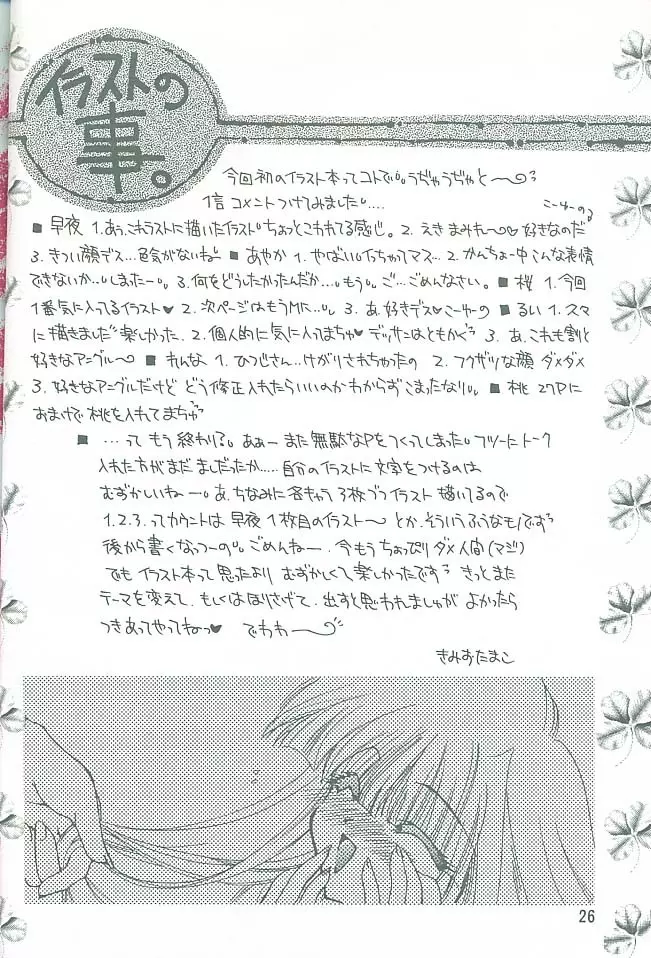 イラストの
事。
今回初のイラスト本ってコトで。。うぢゃうぢゃと〜
1言コメントつけてみました。....
■早夜 1.あぅ、これラストに描いたイラスト。ちょっとこわれてる感じ。2.えき まみれ〜♡好きなのだ
3.きつい顔デス...色気がないねー ■あやか 1.やばい。イっちゃってマス... 2.かんちょー中 こんな表情
できないか...。しまったー。。3.何をどうしたかったんだか...。もう。ご...ごめんなさい。■桜 1.今回
1番気に入ってるイラスト♥ 2.次ページはもうMに...。3.あ、好きデス♥ ■るい 1.スマ
に描きました 楽しかった. 2.個人的に気に入ってまちゅ♥デッサンはともかく 3.あ、これも割と
好きなアングル〜 ■れんな 1.ひつじさん...けがりされちゃったの 2.フクザツな顔 ダメダメ
3.好きなアングルだけど どう修正入れたらいいのかわからずこまったなり。■桃 27Pに
おまけで桃を入れてまちゅ
■ ...って もう終わり?。あぁー また無駄なPをつくってしまった。フツーにトーク
入れた方がまだ ましだったか....自分のイラストに文字をつけるのは
むずかしいねー。あ、ちなみに各キャラ3枚づつイラスト 描いてるので
1.2.3.ってカウントは 早夜 1枚目のイラスト〜 とか.そういうふうなモノです
後から書くなっつーの。。ごめんねー.今もうちょっぴりダメ人間(マジ)
でも イラスト本って 思ったより むずかしくて楽しかったです きっとまた
テーマを変えて.もしくはほりさげて.出すと思われましゅが よかったら
つきあってやってねっ♥ でわわ〜
きみおたまこ
26